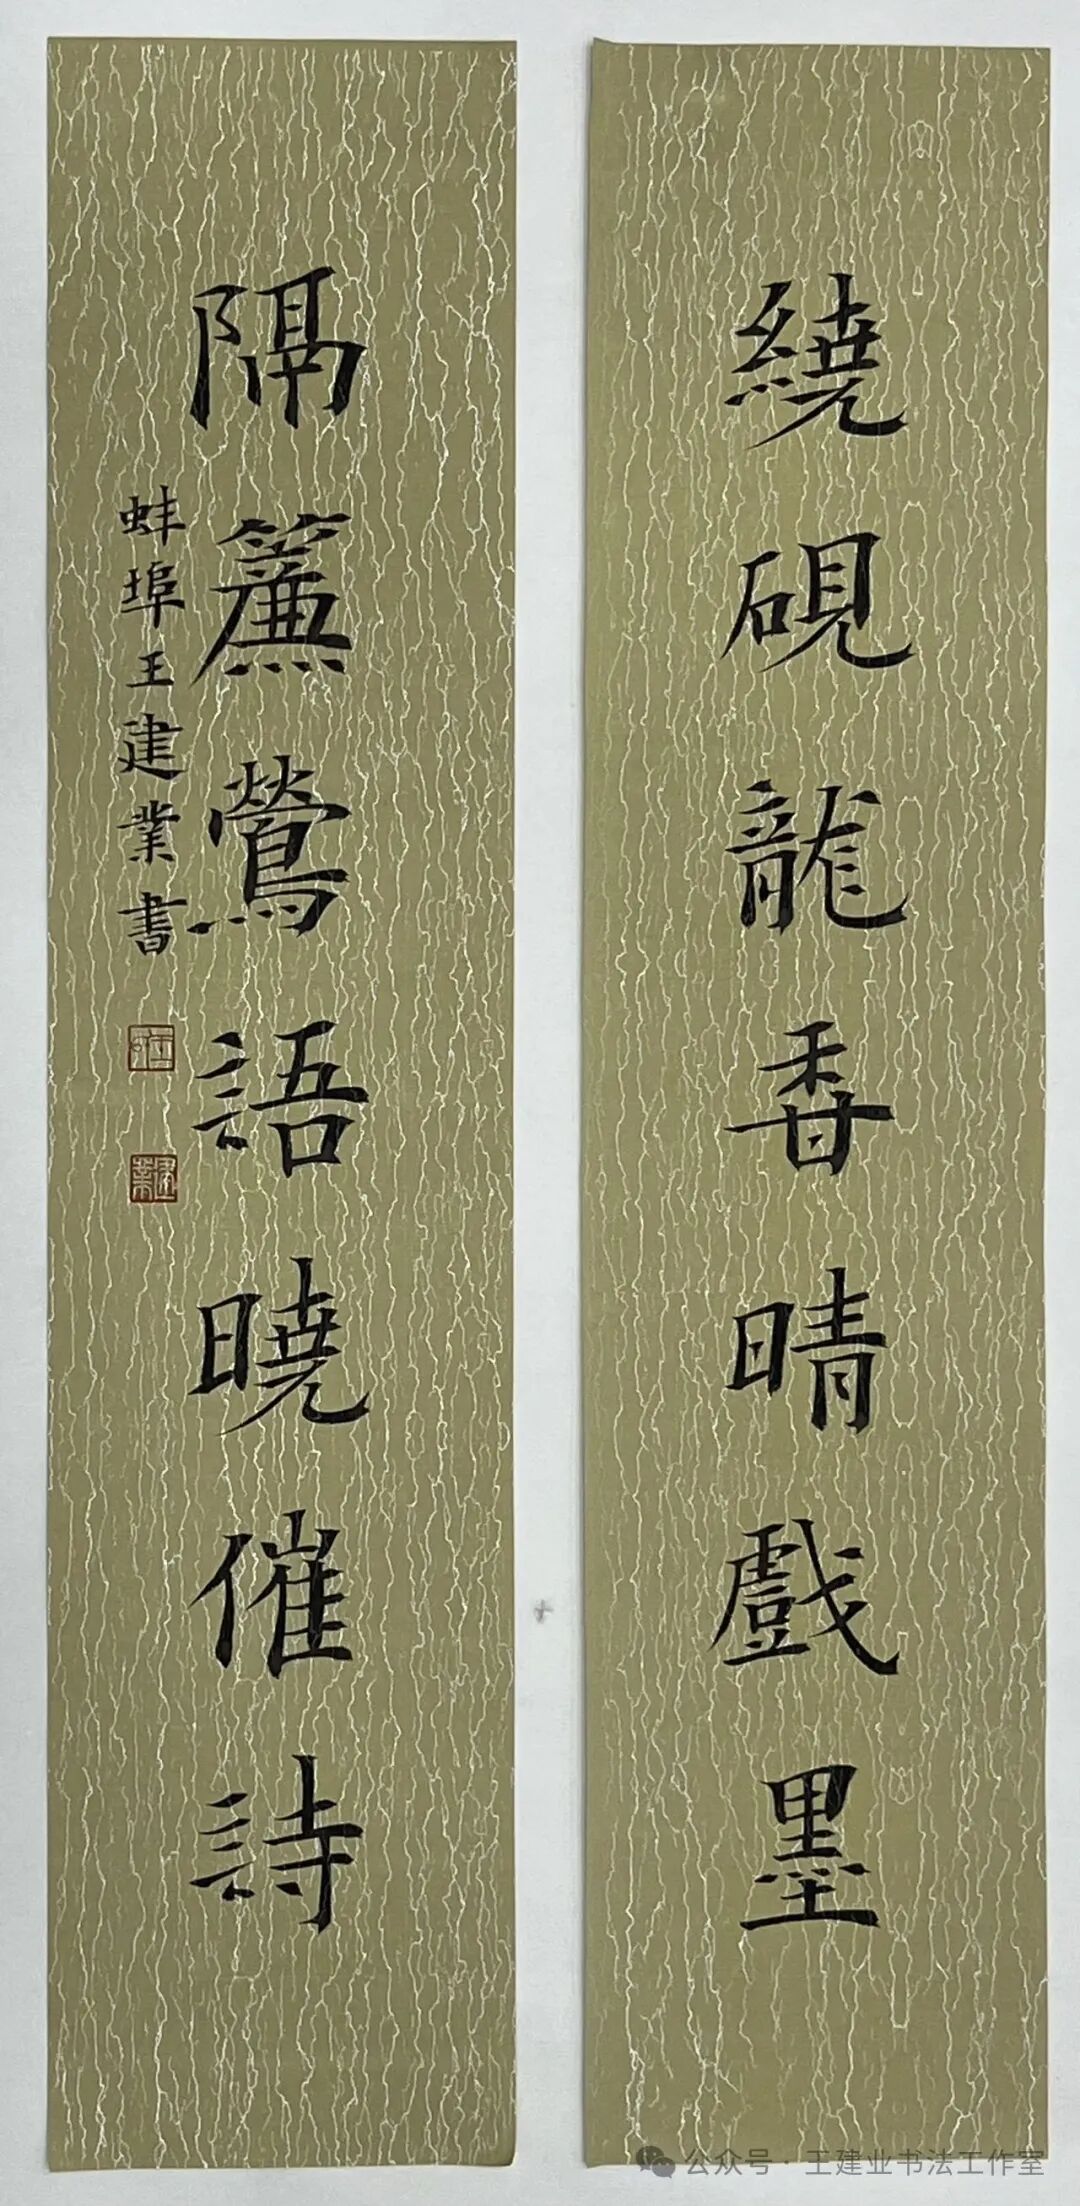 繞硯龍香晴戲墨
隔簾鶯語曉催詩
蚌埠王建業書
建業
公众号·王建业书法工作室